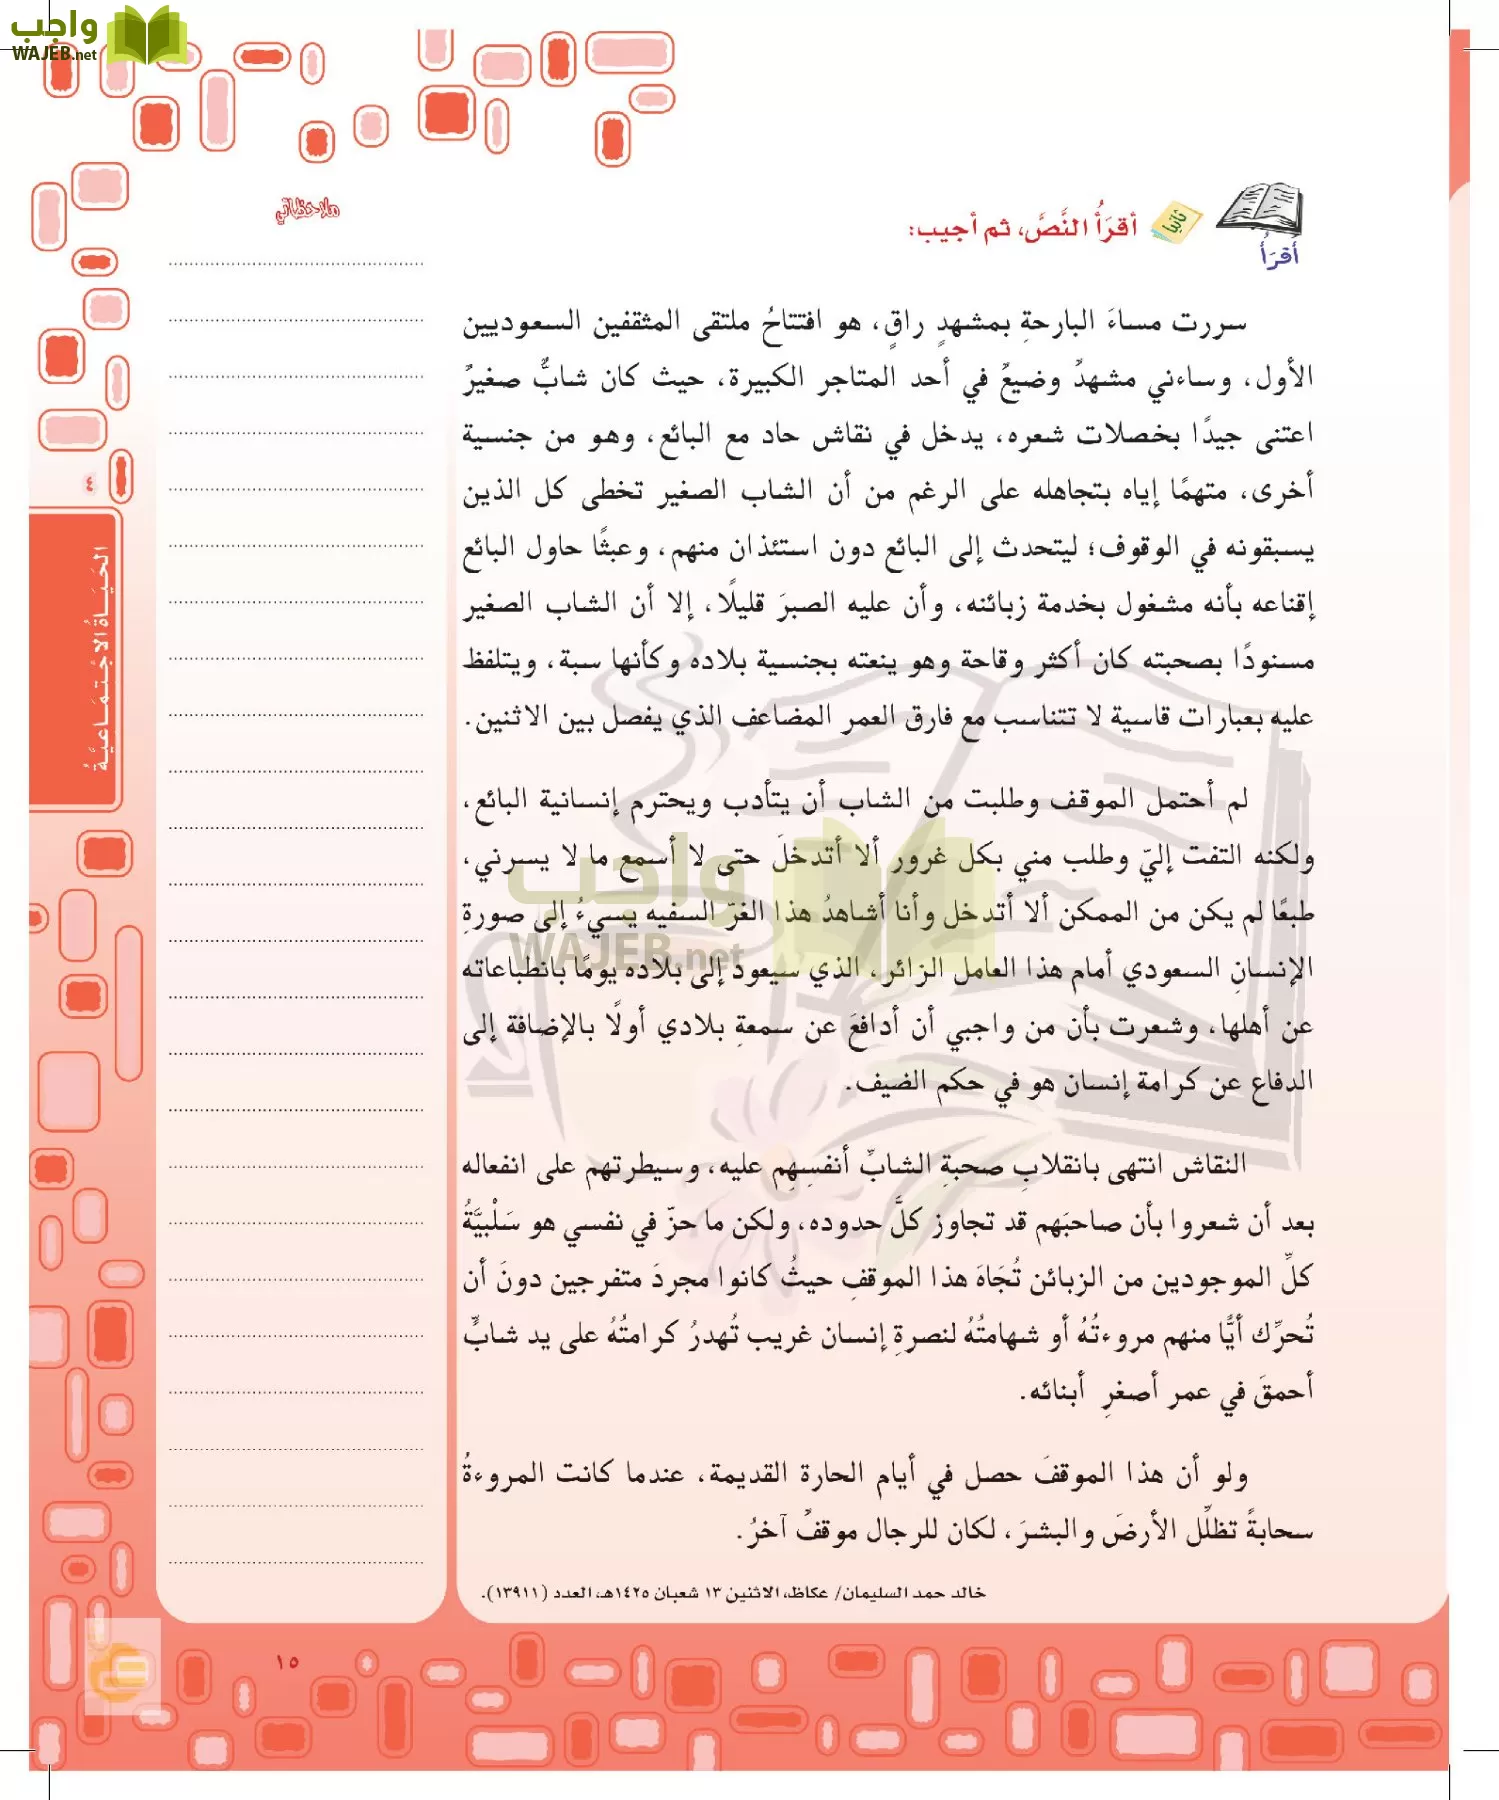 واجب
WAJEB.net
ملاحظاتي
أَقرَأُ
ثانيًا
أقرَأُ النَّصَّ، ثم أجيب:
سررت مساءَ البارحةِ بمشهدٍ راقٍ، هو افتتاحُ ملتقى المثقفين السعوديين
الأول، وساءني مشهدٌ وضيعٌ في أحد المتاجر الكبيرة، حيث كان شابٌّ صغيرٌ
اعتنى جيدًا بخصلات شعره، يدخل في نقاش حاد مع البائع، وهو من جنسية
أخرى، متهمًا إياه بتجاهله على الرغم من أن الشاب الصغير تخطى كل الذين
يسبقونه في الوقوف؛ ليتحدث إلى البائع دون استئذان منهم، وعبثًا حاول البائع
إقناعه بأنه مشغول بخدمة زبائنه، وأن عليه الصبرَ قليلًا، إلا أن الشاب الصغير
مسنودًا بصحبته كان أكثر وقاحة وهو ينعته بجنسية بلاده وكأنها سبة، ويتلفظ
عليه بعبارات قاسية لا تتناسب مع فارق العمر المضاعف الذي يفصل بين الاثنين.
لم أحتمل الموقف وطلبت من الشاب أن يتأدب ويحترم إنسانية البائع،
ولكنه التفت إليّ وطلب مني بكل غرور ألا أتدخلَ حتى لا أسمع ما لا يسرني،
طبعًا لم يكن من الممكن ألا أتدخل وأنا أشاهدُ هذا الغرّ السفيه يسيءُ إلى صورةِ
الإنسانِ السعودي أمام هذا العامل الزائر، الذي سيعود إلى بلاده يومًا بانطباعاته
عن أهلها، وشعرت بأن من واجبي أن أدافعَ عن سمعةِ بلادي أولًا بالإضافة إلى
الدفاع عن كرامة إنسان هو في حكم الضيف.
النقاش انتهى بانقلابِ صحبةِ الشابِّ أنفسِهِم عليه، وسيطرتهم على انفعاله
بعد أن شعروا بأن صاحبَهم قد تجاوز كلَّ حدوده، ولكن ما حزّ في نفسي هو سَلْبيَّةُ
كلِّ الموجودين من الزبائن تُجَاهَ هذا الموقفِ حيثُ كانوا مجردَ متفرجين دونَ أن
تُحرِّك أيًّا منهم مروءتُهُ أو شهامتُهُ لنصرةِ إنسان غريب تُهدرُ كرامتُهُ على يد شابٍّ
أحمقَ في عمر أصغرِ أبنائه.
ولو أن هذا الموقفَ حصل في أيام الحارة القديمة، عندما كانت المروءةُ
سحابةً تظلِّل الأرضَ والبشرَ، لكان للرجال موقفٌ آخرُ.
خالد حمد السليمان/ عكاظ، الاثنين ١٣ شعبان ١٤٢٥هـ، العدد (١٣٩١١).
٤
الحَيَاةُ الاجْتمَاعيَّةُ
واجب
WAJEB.net
١٥